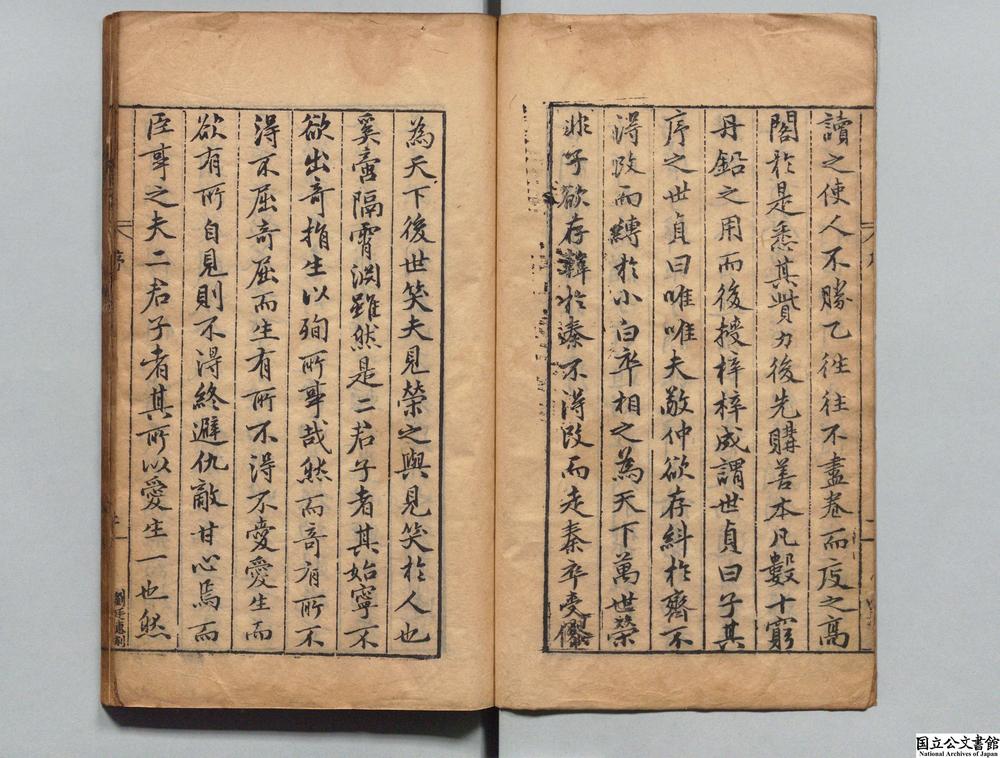 讀之使人不勝乙往往不盡卷而庋之高
閣於是悉其貲力後先購善本凡數十窮
丹鉛之用而後授梓梓成謂世貞曰子其
序之世貞曰唯唯夫敬仲欲存糾於齊不
得改而縛於小白卒相之為天下萬世榮
非子欲存韓於秦不得改而走秦卒受僇
為天下後世笑夫見榮之與見笑於人也
奚啻隔霄淵雖然是二君子者其始寧不
欲出奇捐生以殉所事哉然而奇有所不
得不屈奇屈而生有所不得不愛愛生而
欲有所自見則不得終避仇敵甘心焉而
臣事之夫二君子者其所以愛生一也然
序
国立公文書館
National Archives of Japan